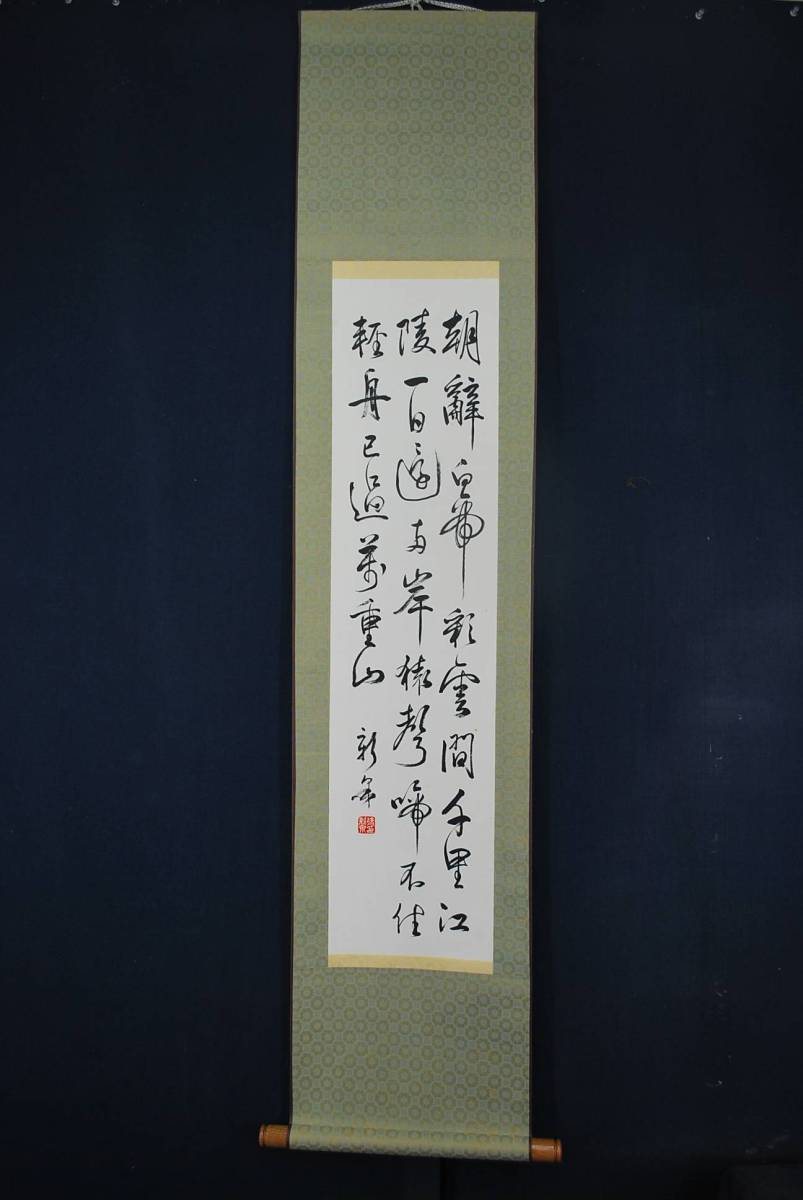 朝辭白帝彩雲間千里江
陵一日還兩岸猿聲啼不住
輕舟已過萬重山